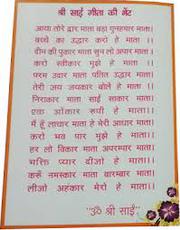 श्री साईं गीता की भेंट
आया तेरे द्वार माता बड़ा गुनहगार माता।
बच्चे का उद्धार करो हे माता ।।
दीन की पुकार माता सुन लो अपार माता।
करो स्वीकार मुझे हे माता ।।
परम उदार माता पतित उद्धार माता।
तेरी जय जयकार बोलें हे माता ।।
निराकार माता साईं साकार माता।
एका ओंकार रूपी हे माता ।।
मैं हूँ लाचार माता मेरी आधार माता।
करो भव पार मुझे हे माता।।
हर लो विकार माता अपरम्पार माता।
भक्ति प्यार दीजो हे माता।।
करूँ नमस्कार माता बारम्बार माता।
लीजो अहंकार मेरो हे माता ।।
"ॐ श्री साईं"